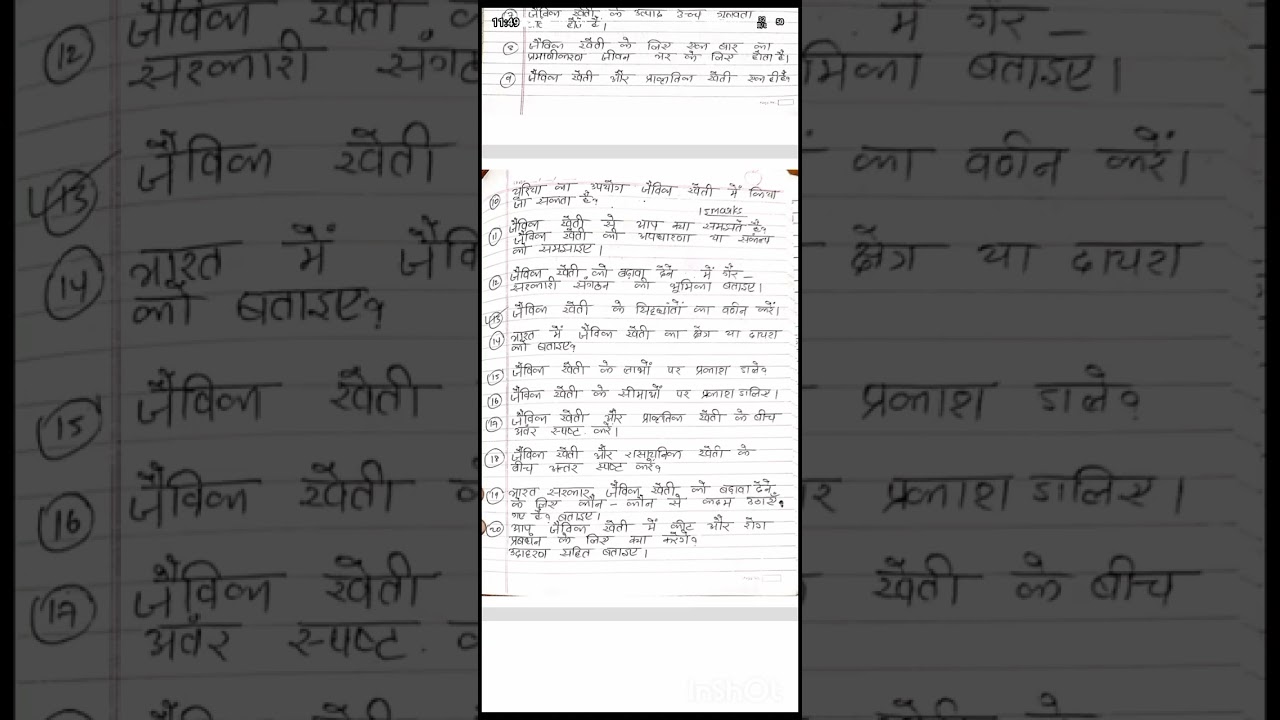 11:49
जैविक खेती के उत्पाद उच्च गुणवत्ता
के होते हैं।
८ जैविक खेती के लिए एक बार का
प्रमाणीकरण जीवन भर के लिए होता है।
९ जैविक खेती और प्राकृतिक खेती एक ही है?
१० यूरिया का उपयोग जैविक खेती में किया
जा सकता है?
15marks
११ जैविक खेती से आप क्या समझते है?
जैविक खेती की अवधारणा या संकल्प
को समझाइए।
१२ जैविक खेती को बढ़ावा देने में गैर -
सरकारी संगठन की भूमिका बताइए।
१३ जैविक खेती के सिद्धांतों का वर्णन करें।
१४ भारत में जैविक खेती का क्षेत्र या दायरा
को बताइए?
१५ जैविक खेती के लाभों पर प्रकाश डाले?
१६ जैविक खेती के सीमाओं पर प्रकाश डालिए।
१७ जैविक खेती और प्राकृतिक खेती के बीच
अंतर स्पष्ट करें।
१८ जैविक खेती और रासायनिक खेती के
बीच अन्तर स्पष्ट करें?
१९ भारत सरकार जैविक खेती को बढ़ावा देने
के लिए कौन - कौन से कदम उठाएँ
गए है? बताइए।
२० आप जैविक खेती में कीट और रोग
प्रबंधन के लिए क्या करेंगे?
उदाहरण सहित बताइए।
InShOt